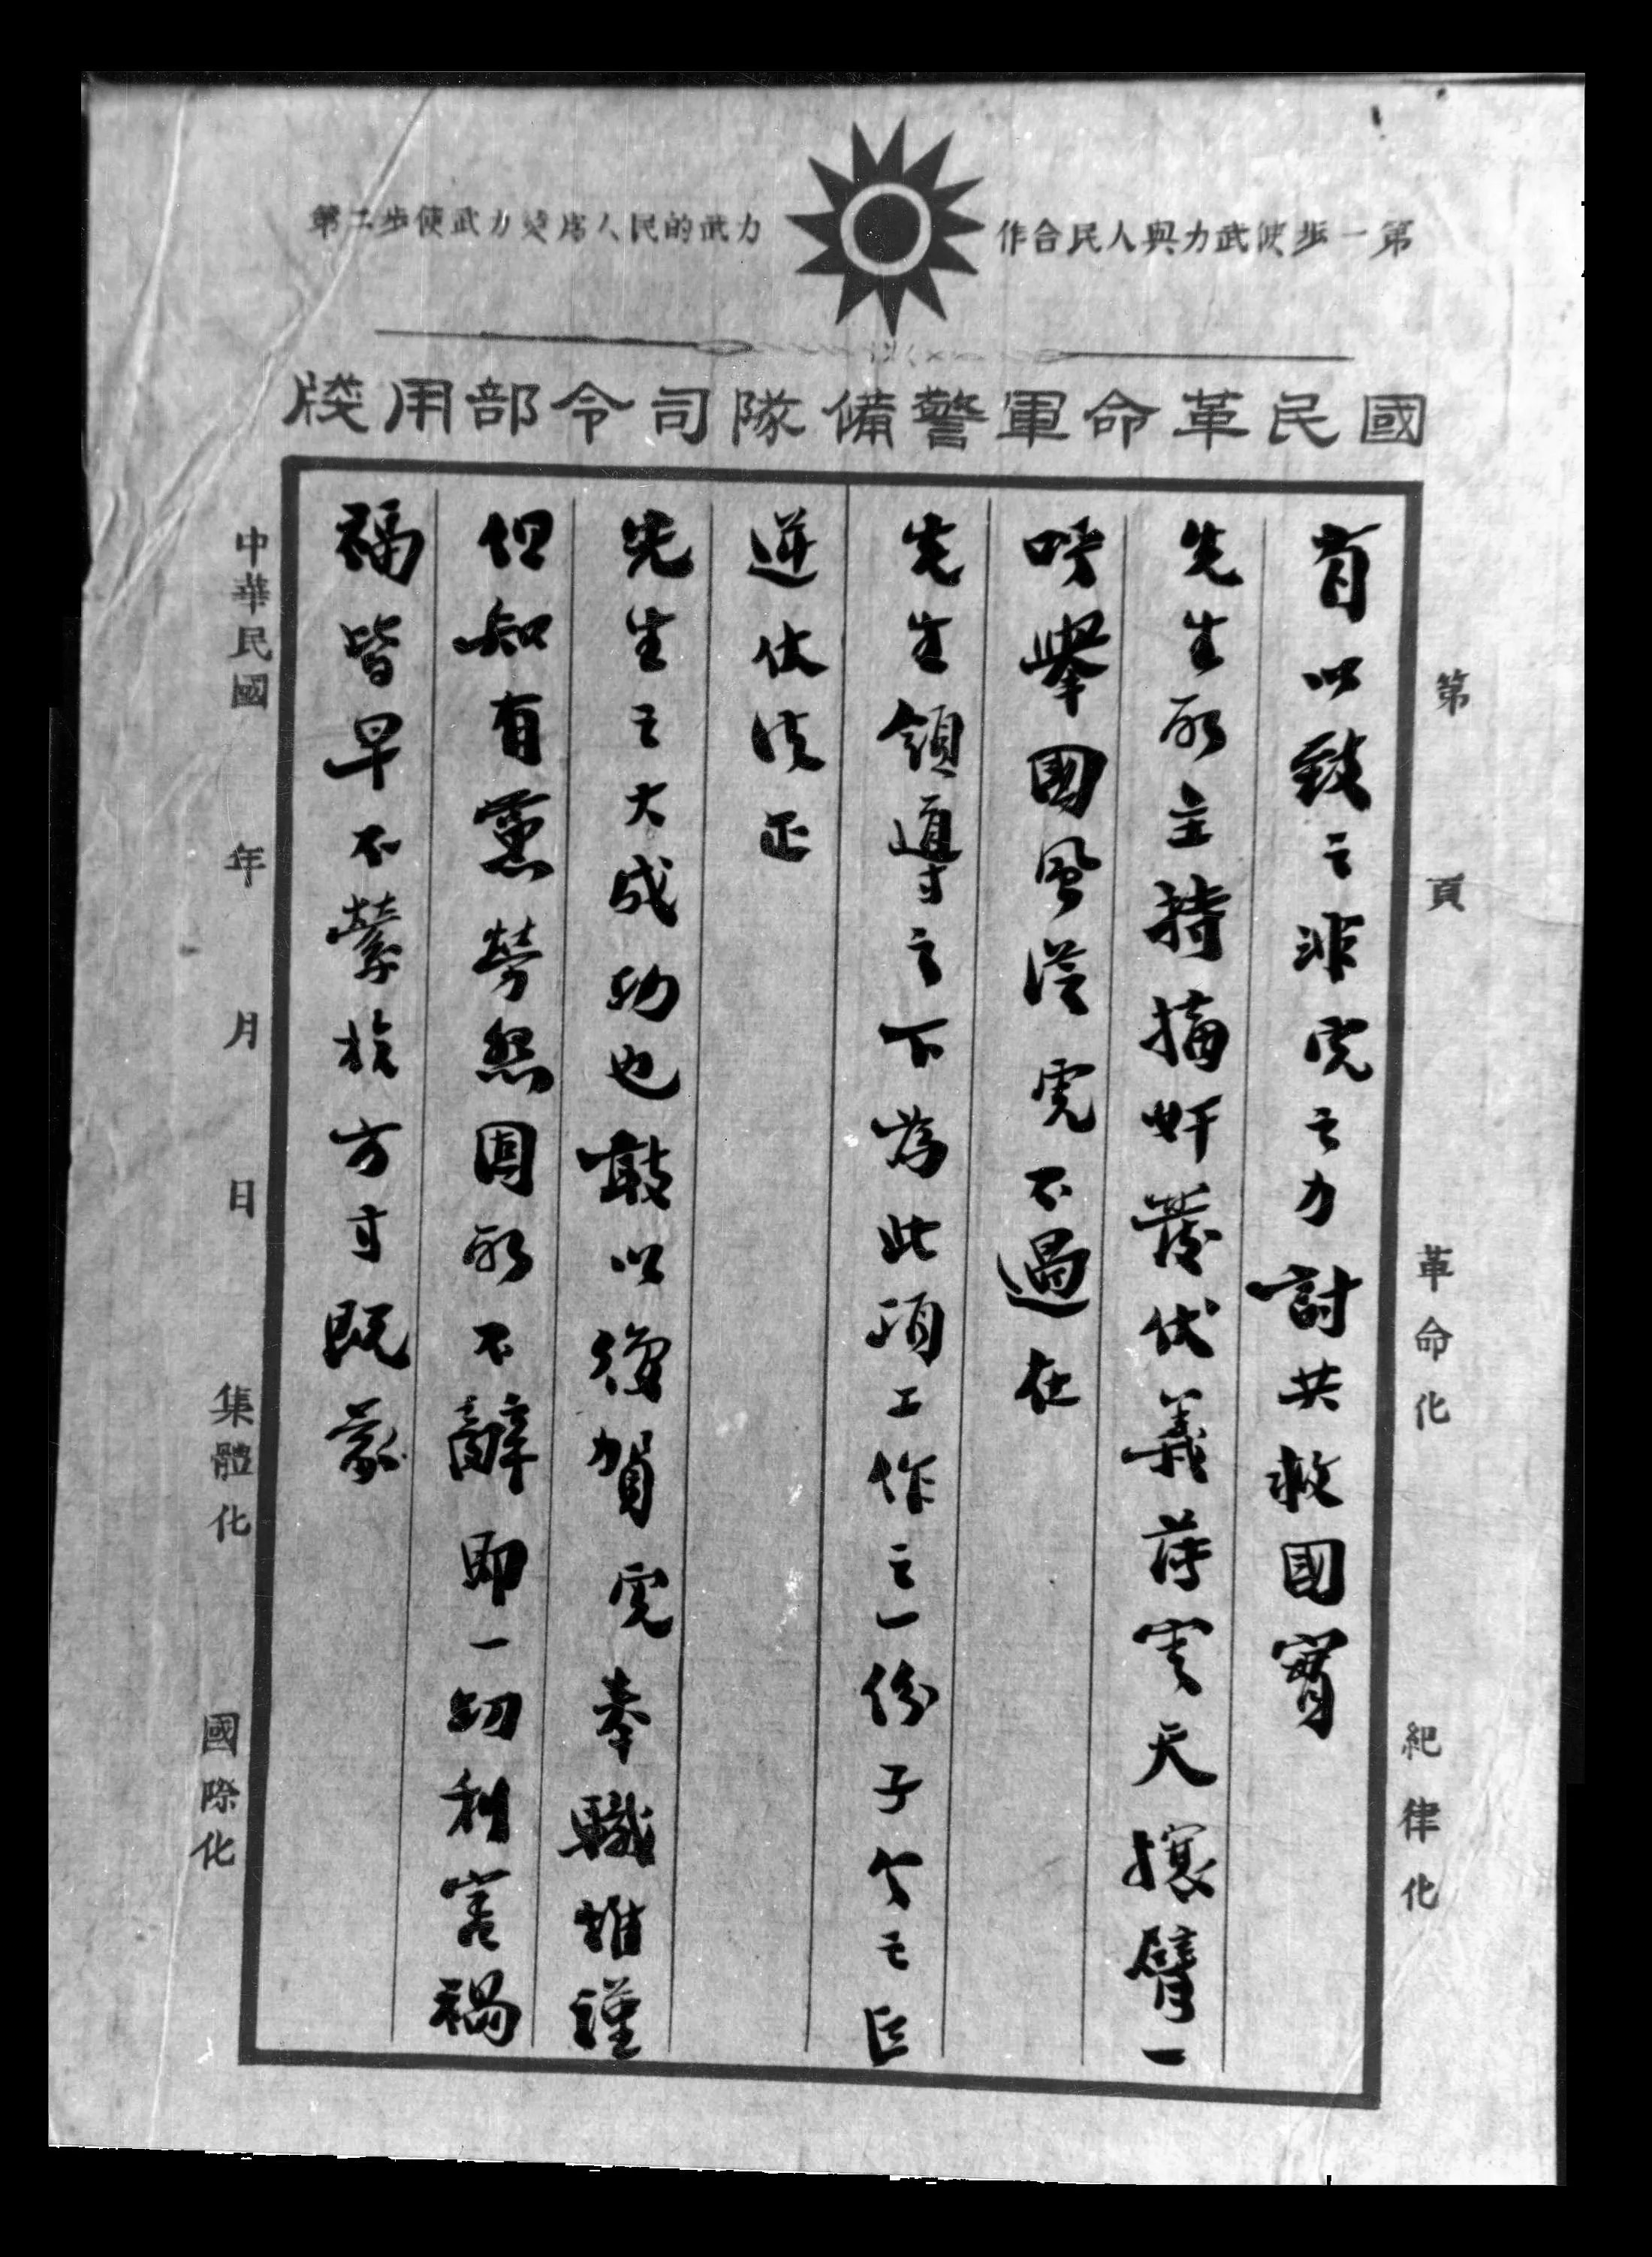 第一步使武力與人民合作
第二步使武力變為人民的武力
國民革命軍警備隊司令部用牋
第 頁 革命化 紀律化
有以致之非虎之力討共救國實
先生所主持摘奸發伏義薄雲天攘臂一
呼舉國風從虎不過在
先生領導之下為此項工作之一份子今之巨
逆伏法正
先生之大成功也敢以復賀虎奉職惟謹
但知有黨勞怨固所不辭即一切利害禍
福皆早不縈於方寸既蒙
中華民國 年 月 日 集體化 國際化